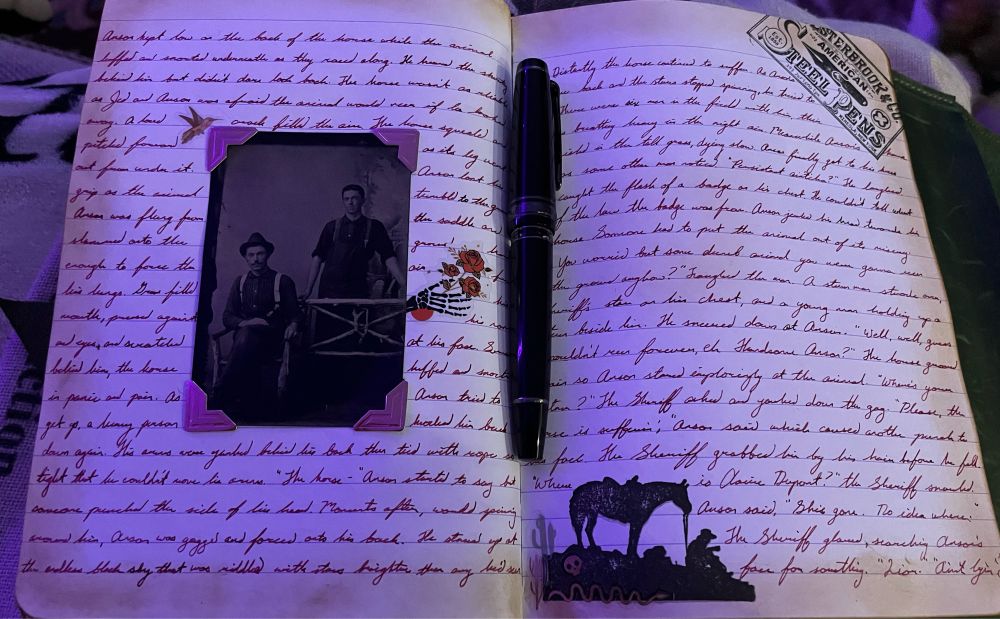 Anson kept low on the back of the horse while the animal
huffed and snorted underneath as they raced along. He heard the
behind him but didn't dare look back. The horse wasn't as
as Jed and Anson was afraid the animal would rear if he looked
away. A loud crack filled the air. The horse squealed
pitched forward as its leg
out from under it. Anson lost
grip as the animal tumbled to the
Anson was flung from the saddle and
slammed onto the
enough to force the air
his lungs. Grass filled his
mouth, pressed against his
and eyes, and scratched at his face. Some
behind him, the horse huffed and snorted
in panic and pain. As Anson tried to
get up, a heavy person knocked him back
down again. His arms were yanked behind his back then tied with rope so
tight that he couldn't move his arms. "The horse-" Anson started to say but
someone punched the side of his head. Moments after, world spinning
around him, Anson was gagged and forced onto his back. He stared up at
the endless black sky that was riddled with stars brighter than any he'd seen
Distantly the horse continued to suffer. As Anson
back and the stars stopped spinning, he tried to
There were six men in the field with him, their
breathing heavy in the night air. Meanwhile Anson's
in the tall grass, dying slow. Anson finally got to his knees
as some other man noticed. "Persistent aintcha?" He laughed
caught the flash of a badge on his chest. He couldn't tell what
of the law the badge was from. Anson jerked his head towards the
horse. Someone had to put the animal out of its misery
"You worried bout some dumb animal you were gonna run
the ground anyhow?" laughed the man. A stern man strode over,
sheriff's star on his chest, and a young man holding up a
beside him. He sneered down at Anson. "Well, well, guess
couldn't run forever, eh Handsome Anson?" The horse groaned
so Anson stared imploringly at the animal. "Where's your
?" The Sheriff asked and yanked down the gag. "Please, the
horse is sufferin'," Anson said which caused another punch to
his face. The Sheriff grabbed him by his hair before he fell.
"Where is Claire Dupont?" the Sheriff snarled.
Anson said, "She's gone. No idea where."
The Sheriff glared, searching Anson's
face for something. "Liar." "Ain't lyin'
ESTERBROOK & CO.
AMERICAN
STEEL PENS